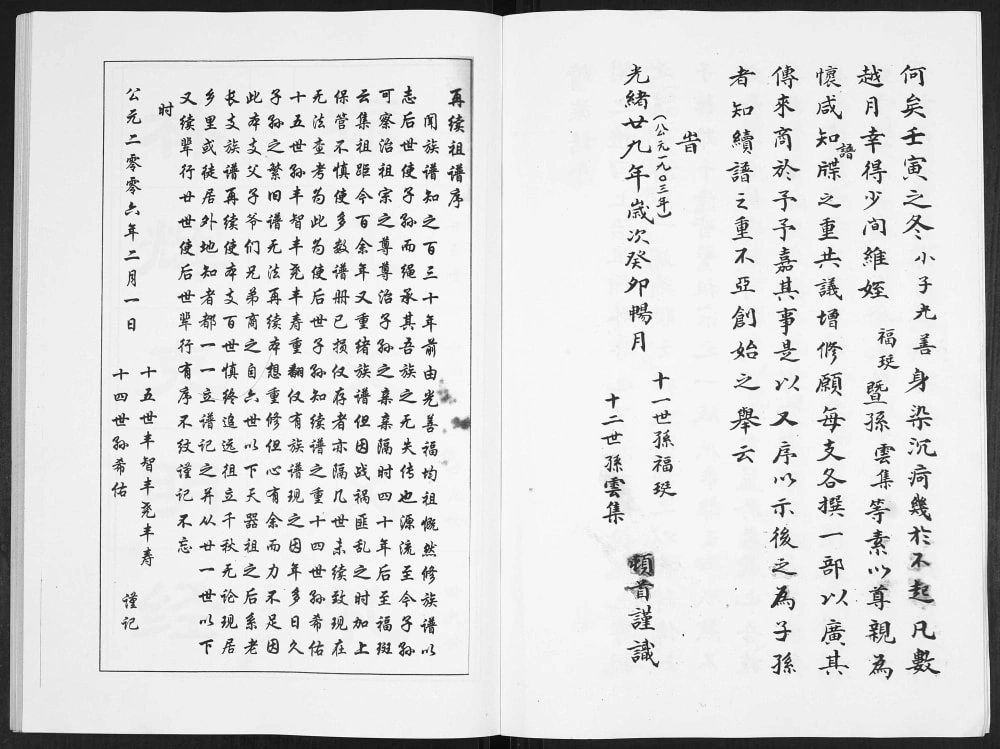 何矣壬寅之冬小子光善身染沉疴幾於不起凡數
越月幸得少间維姪福珽暨孫雲集等素以尊親為
懷咸知譜牒之重共議增修願每支各撰一部以廣其
傳來商於予予嘉其事是以又序以示後之為子孫
者知續譜之重不亞創始之舉云
旹
光緒廿九年歲次癸卯暢月
（公元一九〇三年）
十一世孫福珽
十二世孫雲集
頓首謹識
再续祖谱序
闻族谱知之百三十年前由光善福均祖慨然修族谱以
志后世使子孙而绳承其吾族之无失传也源流至今子孙
可察治祖宗之尊尊治子孙之亲亲隔时四十年后至福斑
云集祖距今百余年又重绪族谱但因战祸匪乱之时加上
保管不慎使多数谱册已损仅存者亦隔几世未续致现在
无法查考为此为使后世子孙知续谱之重十四世孙希佑
十五世孙丰智丰尧丰寿重翻仅有族谱现之因年多日久
子孙之繁旧谱无法再续本想重修但心有余而力不足因
此本支父子爷们兄弟商之自六世以下天器祖之后系老
长支族谱再续使本支百世慎终追远祖立千秋无论现居
乡里或徒居外地知者都一一立谱记之并从廿一世以下
又续辈行廿世使后世辈行有序不纹谨记不忘
时
公元二零零六年二月一日
十五世丰智丰尧丰寿
十四世孙希佑
谨记